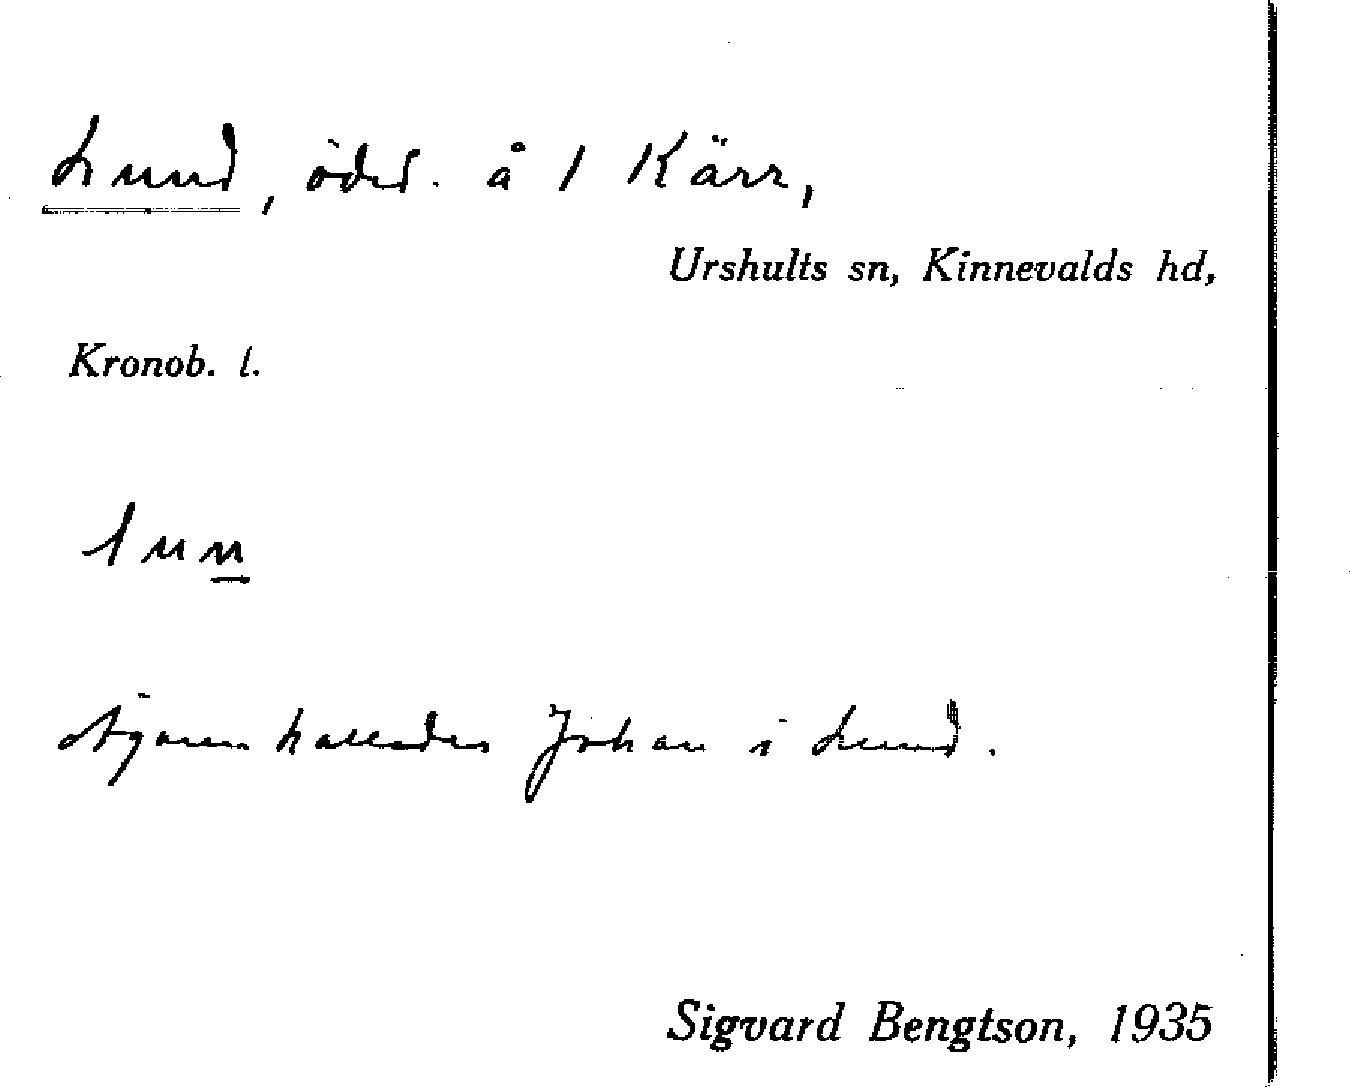 Lund, ödesl. å 1 Kärr,
Urshults sn, Kinnevalds hd,
Kronob. l.
lun
Ägaren kallades Johan i Lund.
Sigvard Bengtson, 1935